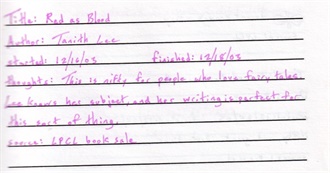 Title: Red as Blood
Author: Tanith Lee
started: 12/16/03 finished: 12/18/03
Thoughts: This is nifty for people who love fairy tales.
Lee knows her subject, and her writing is perfect for
this sort of thing.
source: LPCL book sale